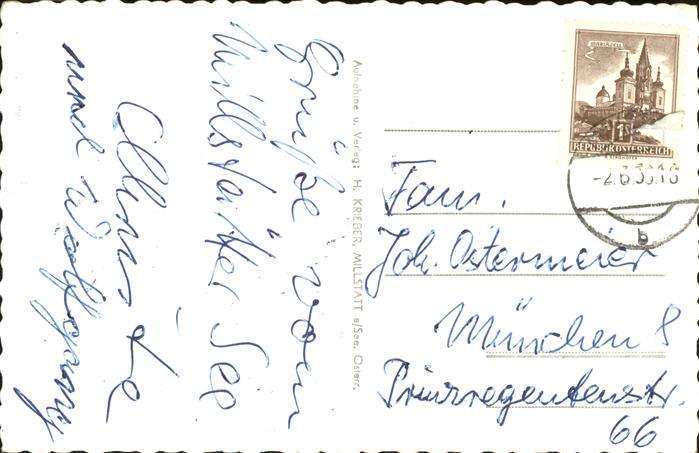 Grüße vom
Millstätter See
und Wolfgang
Aufnahme u. Verlag: H. KRIEBER, MILLSTATT a/See, Österr.
MARIAZELL
REPUBLIK ÖSTERREICH
-2.6.
b
Fam.
Joh. Ostermeier
München 8
Prinzregentenstr.
66